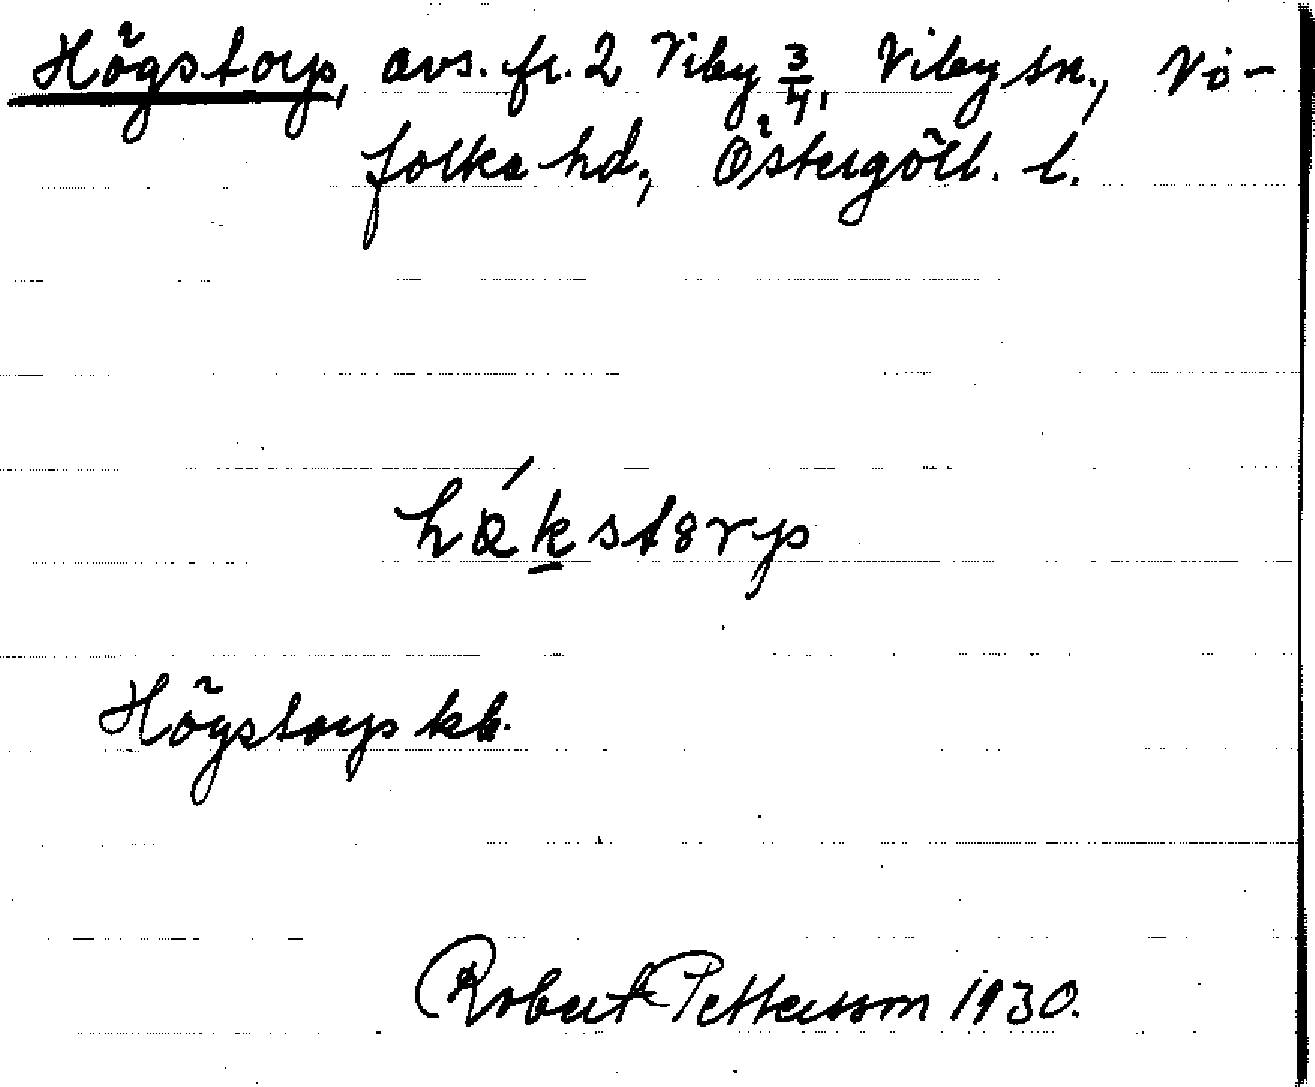 Högstorp, avs. fr. 2 Viby 3/4, Viby sn., Vi-
folka hd, Östergötl. l.
hö́kstorp
Högstorp kb.
Robert Pettersson 1930.